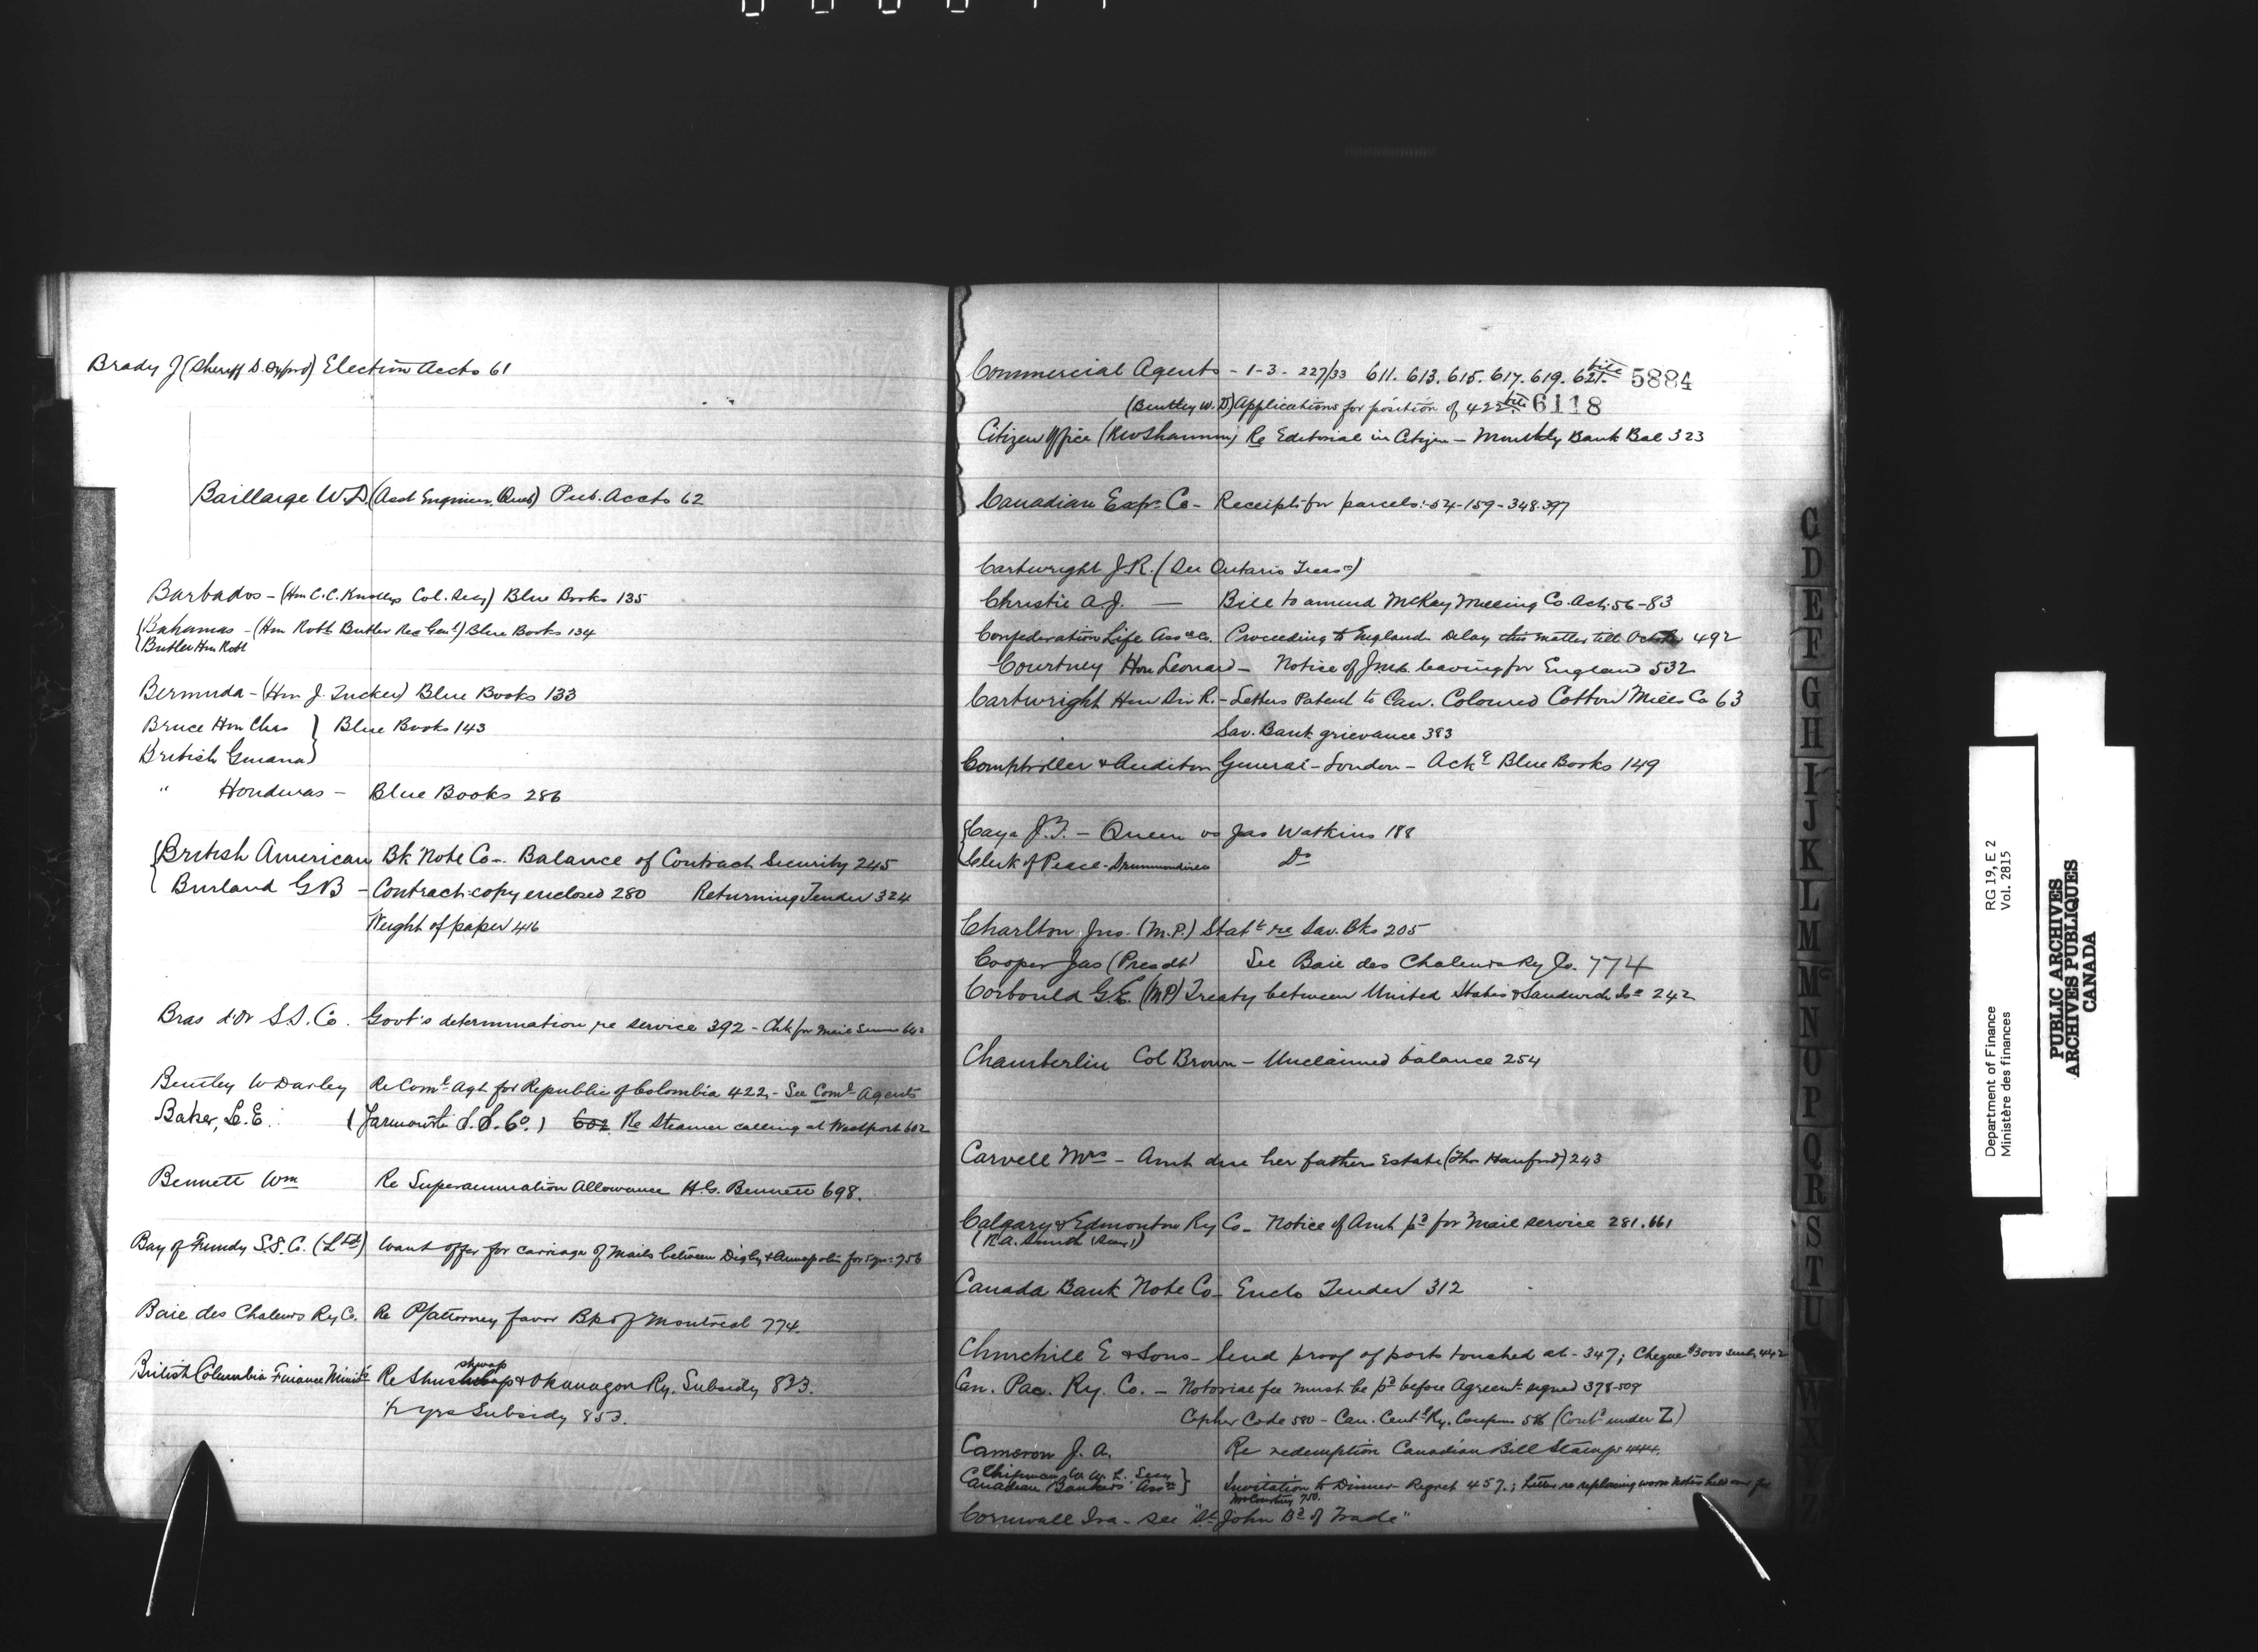 Brady J (Sheriff S. Oxford) Election Accts 61
Baillarge W.D. (Asst Engineer, Queb) Pub. Accts 62
Barbados - (Hon C.C. Knollys Col. Secy) Blue Books 135
Bahamas - (Hon Robt Butler Rec Genl) Blue Books 134
Butler Hon Robt
Bermuda - (Hon J. Tucker) Blue Books 133
Bruce Hon Chas } Blue Books 143
British Guiana }
" Honduras - Blue Books 286
British American Bk Note Co -. Balance of Contract Security 245
Burland G B - Contract copy enclosed 280 Returning Tender 324
Weight of paper 416
Bras d'Or S.S. Co. Govt's determination re service 392 - Chk for Mail Service 642
Bentley W Darley Re Coml Agt for Republic of Colombia 422, - See Coml Agents
Baker, L.E. (Yarmouth S.S. Co.) 602 Re Steamer calling at Westport 602
Bennett Wm Re Superannuation Allowance H.G. Bennett 698.
Bay of Fundy S.S. Co. (Ltd) Want offer for carriage of Mails between Digby & Annapolis for 5 yrs - 756
Baie des Chaleurs Ry Co. Re P/attorney favor Bk of Montreal 774.
British Columbia Finance Ministr Re Shuswap & Okanagon Ry. Subsidy 823.
½ yrs Subsidy 853.
Commercial Agents - 1-3 - 227/33 611. 613. 615. 617. 619. 621. bis 5884
(Bentley W.D) Applications for position of 422 bis 6118
Citizen Office (RW Shannon) Re Editorial in Citizen - Monthly Bank Bal 323
Canadian Exps. Co - Receipts for parcels:- 54-159-348.397
Cartwright J.R. (See Ontario Treasr)
Christie A.J. - Bill to amend McKay Milling Co. Act. 56-83
Confederation Life Assn Co. Proceeding to England Delay this matter till Octr 492
Courtney Hon Leonard - Notice of J.M.C. leaving for England 532
Cartwright Hon Sir R. - Letters Patent to Can. Coloured Cotton Mills Co 63
Sav. Bank grievance 383
Comptroller & Auditor General - London - Ackg Blue Books 149
Caya J.F. - Queen vs Jas Watkins 188
Clerk of Peace - Drummondville Do
Charlton Jno. (M.P.) Statt re Sav. Bks 205
Cooper Jas (Presdt) See Baie des Chaleurs Ry Co. 774
Corbould G.E. (MP) Treaty between United States & Sandwich Is 242
Chamberlin Col Brown - Unclaimed balance 254
Carvell Mrs - Amt due her fathers Estate (Thos Hanford) 243
Calgary & Edmonton Ry Co - Notice of Amt pd for Mail service 281. 661
(R.A. Smith Secy)
Canada Bank Note Co - Enclo Tender 312
Churchill E & Sons - Send proof of ports touched at - 347; Cheque $3000 sent, 442
Can. Pac. Ry. Co. - Notorial fee must be pd before Agreemt signed 378-509
Cypher Code 580 - Can. Centl Ry. Coupons 586 (Contd under Z)
Cameron J.A. Re redemption Canadian Bill Stamps 444.
Chipman W.W.L. Secy }
Canadian Bankers' Assn } Invitation to Dinner - Regret 457.; Letter re replacing worn notes held over for
Mr Courtney 750.
Cornwall Ira - see "St John Bd of Trade"
C
D
E
F
G
H
I
J
K
L
M
Mc
N
O
P
Q
R
S
T
U
W
X
Y
Z
Department of Finance
Ministère des finances
RG 19, E 2
Vol. 2815
PUBLIC ARCHIVES
ARCHIVES PUBLIQUES
CANADA